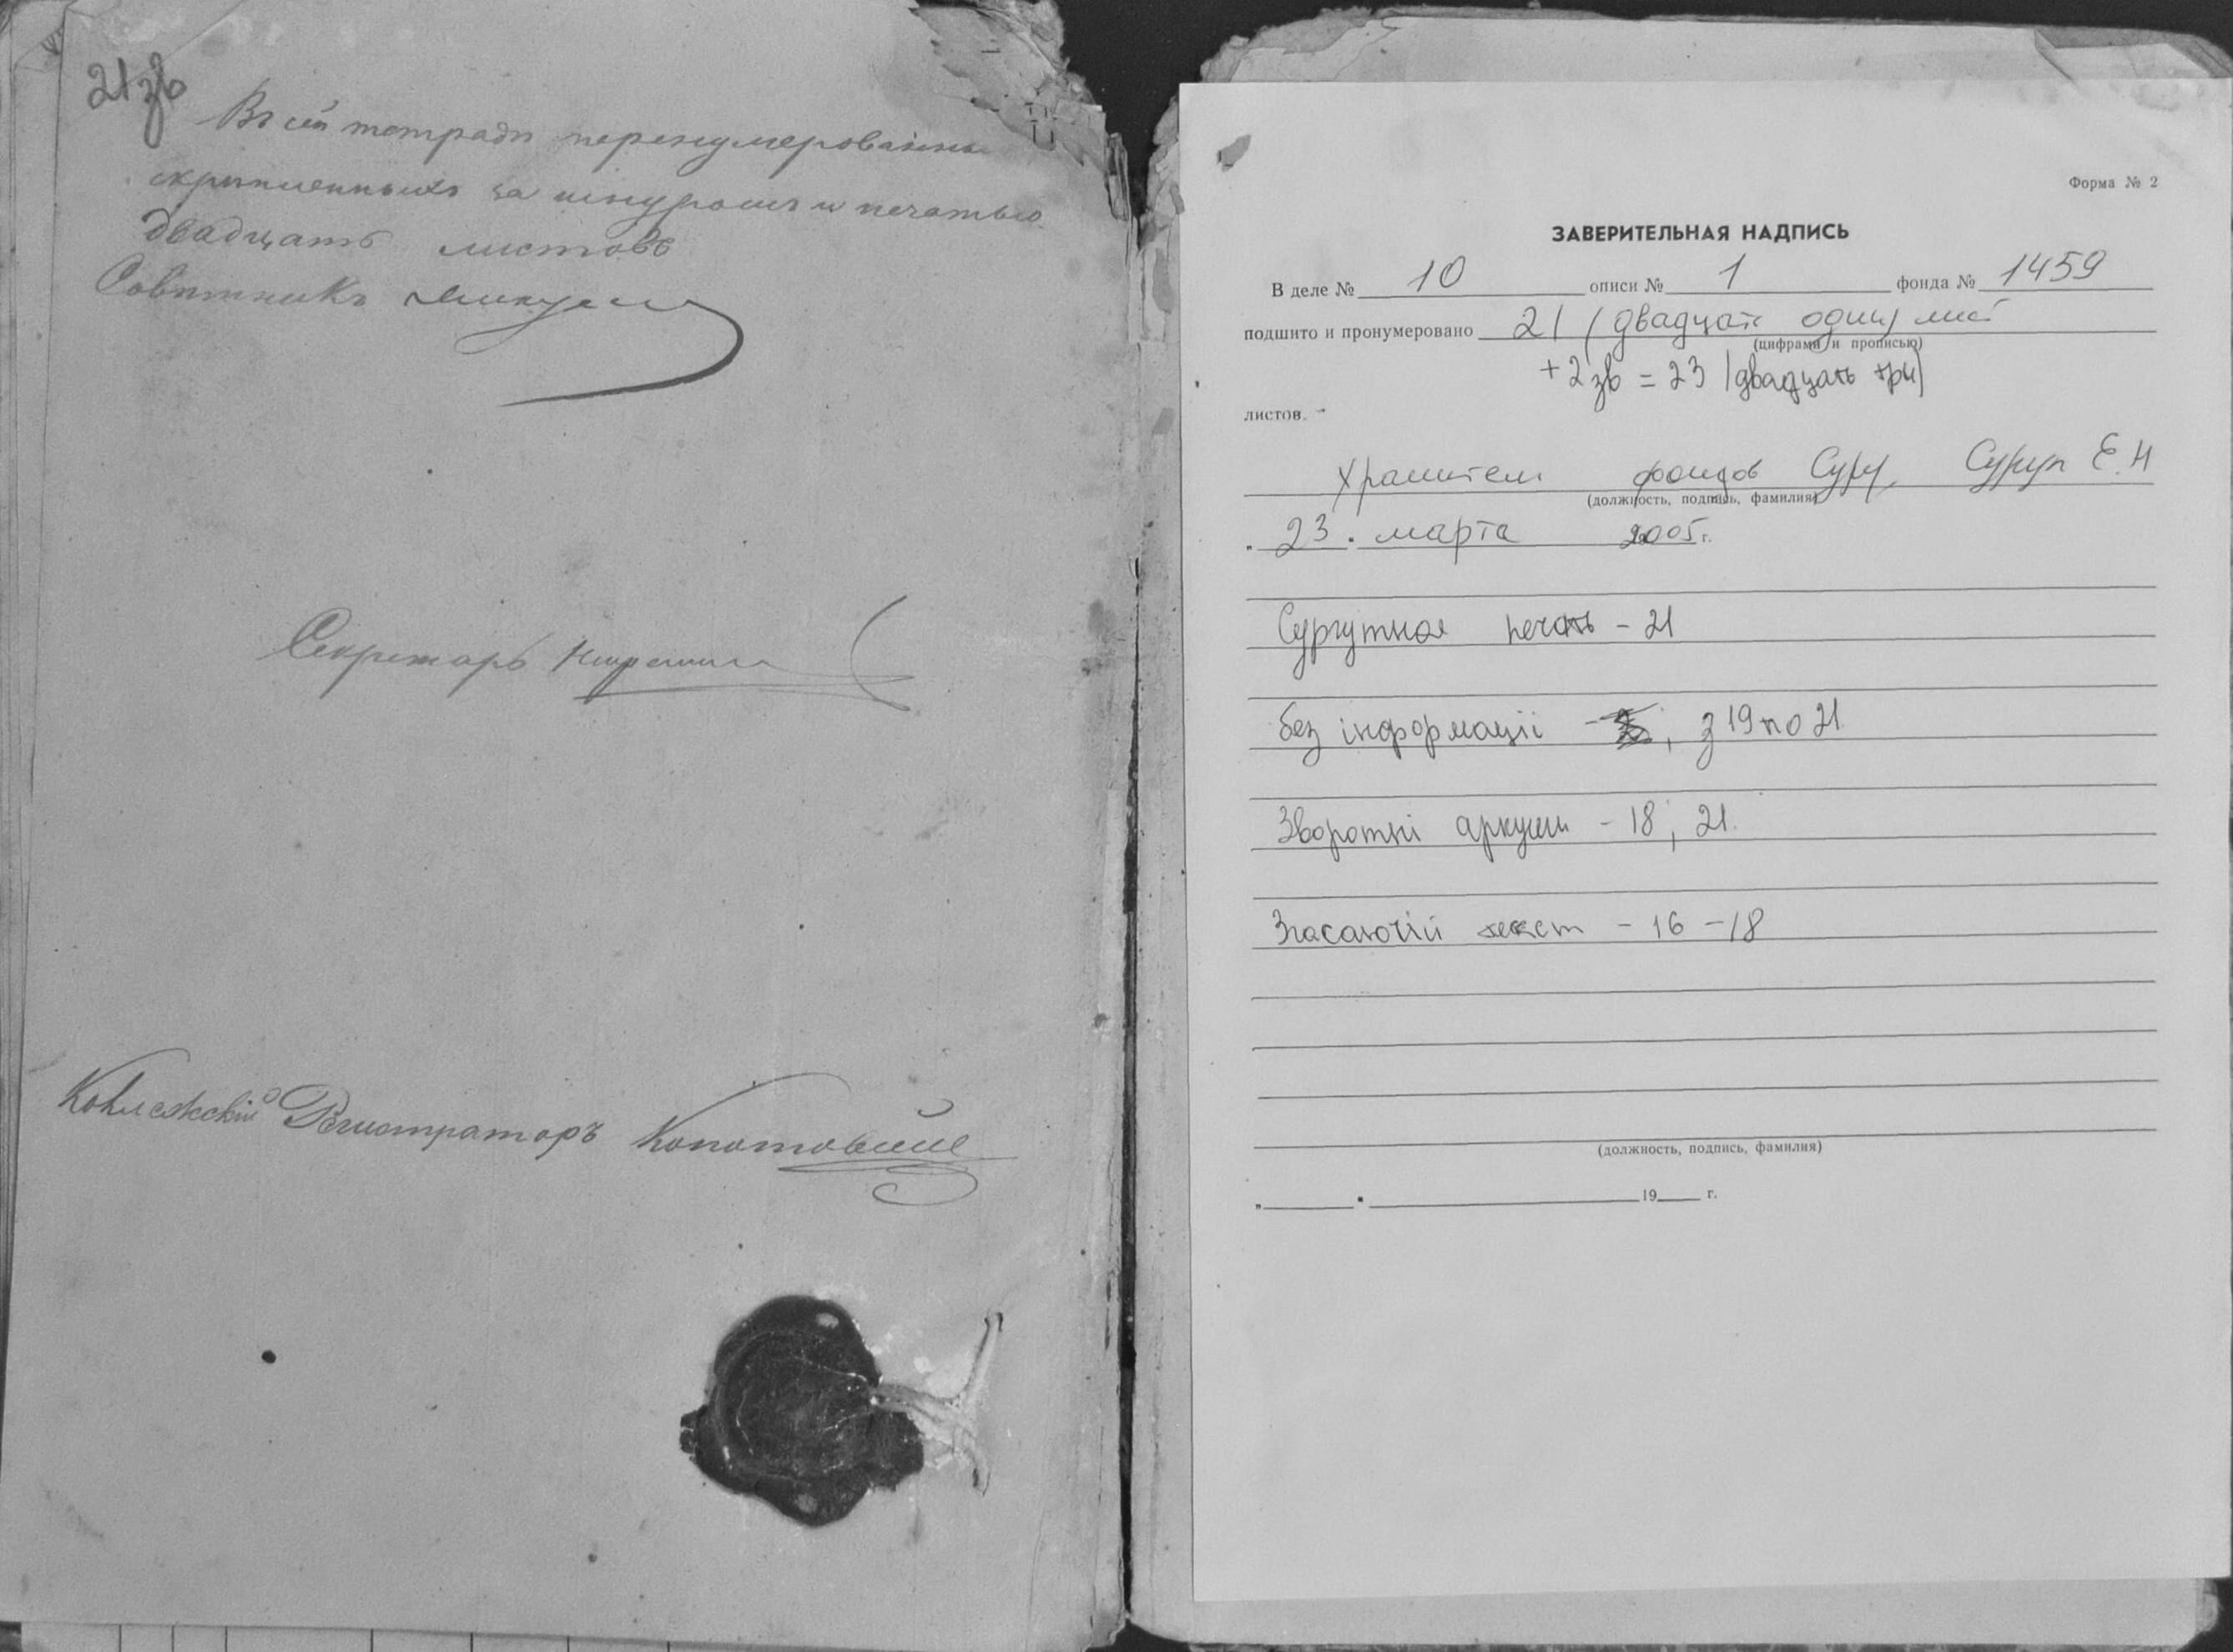 21 зв
Въ сей тетради перенумерованных
скрепленныхъ за шнуромъ и печатью
двадцать листовъ
Советникъ
Секретарь
Коллежскій Регистраторъ
Форма № 2
ЗАВЕРИТЕЛЬНАЯ НАДПИСЬ
В деле № 10 описи № 1 фонда № 1459
подшито и пронумеровано 21 (двадцать один) лист
(цифрами и прописью)
+2 зв = 23 (двадцать три)
листов.
Хранитель фондов Сург
(должность, подпись, фамилия)
„ 23 " марта 2005 г.
Сургутная печать - 21
без інформації - , з 19 по 21
Зворотні аркуши - 18, 21.
Згасаючий текст - 16 - 18
(должность, подпись, фамилия)
„ " 19 г.